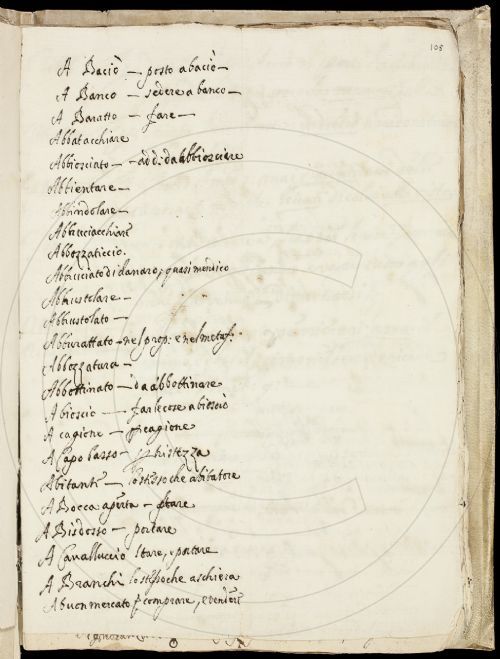 108
A Baciò — posto a baciò —
A Banco — sedere a banco —
A Baratto — fare —
Abbatacchiare
Abbiosciato — add: da abbiosciare
Abbientare —
Abbindolare —
Abbruciacchiare
Abbozzaticcio.
Abbruciato di danaro, quasi mendico
Abbrustolare —
Abbrustolato —
Abburattato — nel prop: e nel metaf:
Abbozzatura —
Abbottinato — da abbottinare
A bioscio — far le cose a bioscio
A cagione — cagione
A Capo basso — tristezza
Abitante — lo stesso che abitatore
A Bocca aperta — stare
A Bisdosso — portare
A Cavalluccio stare, portare
A Branchi lo stesso che a schiera
A buon mercato comprare, e vendere